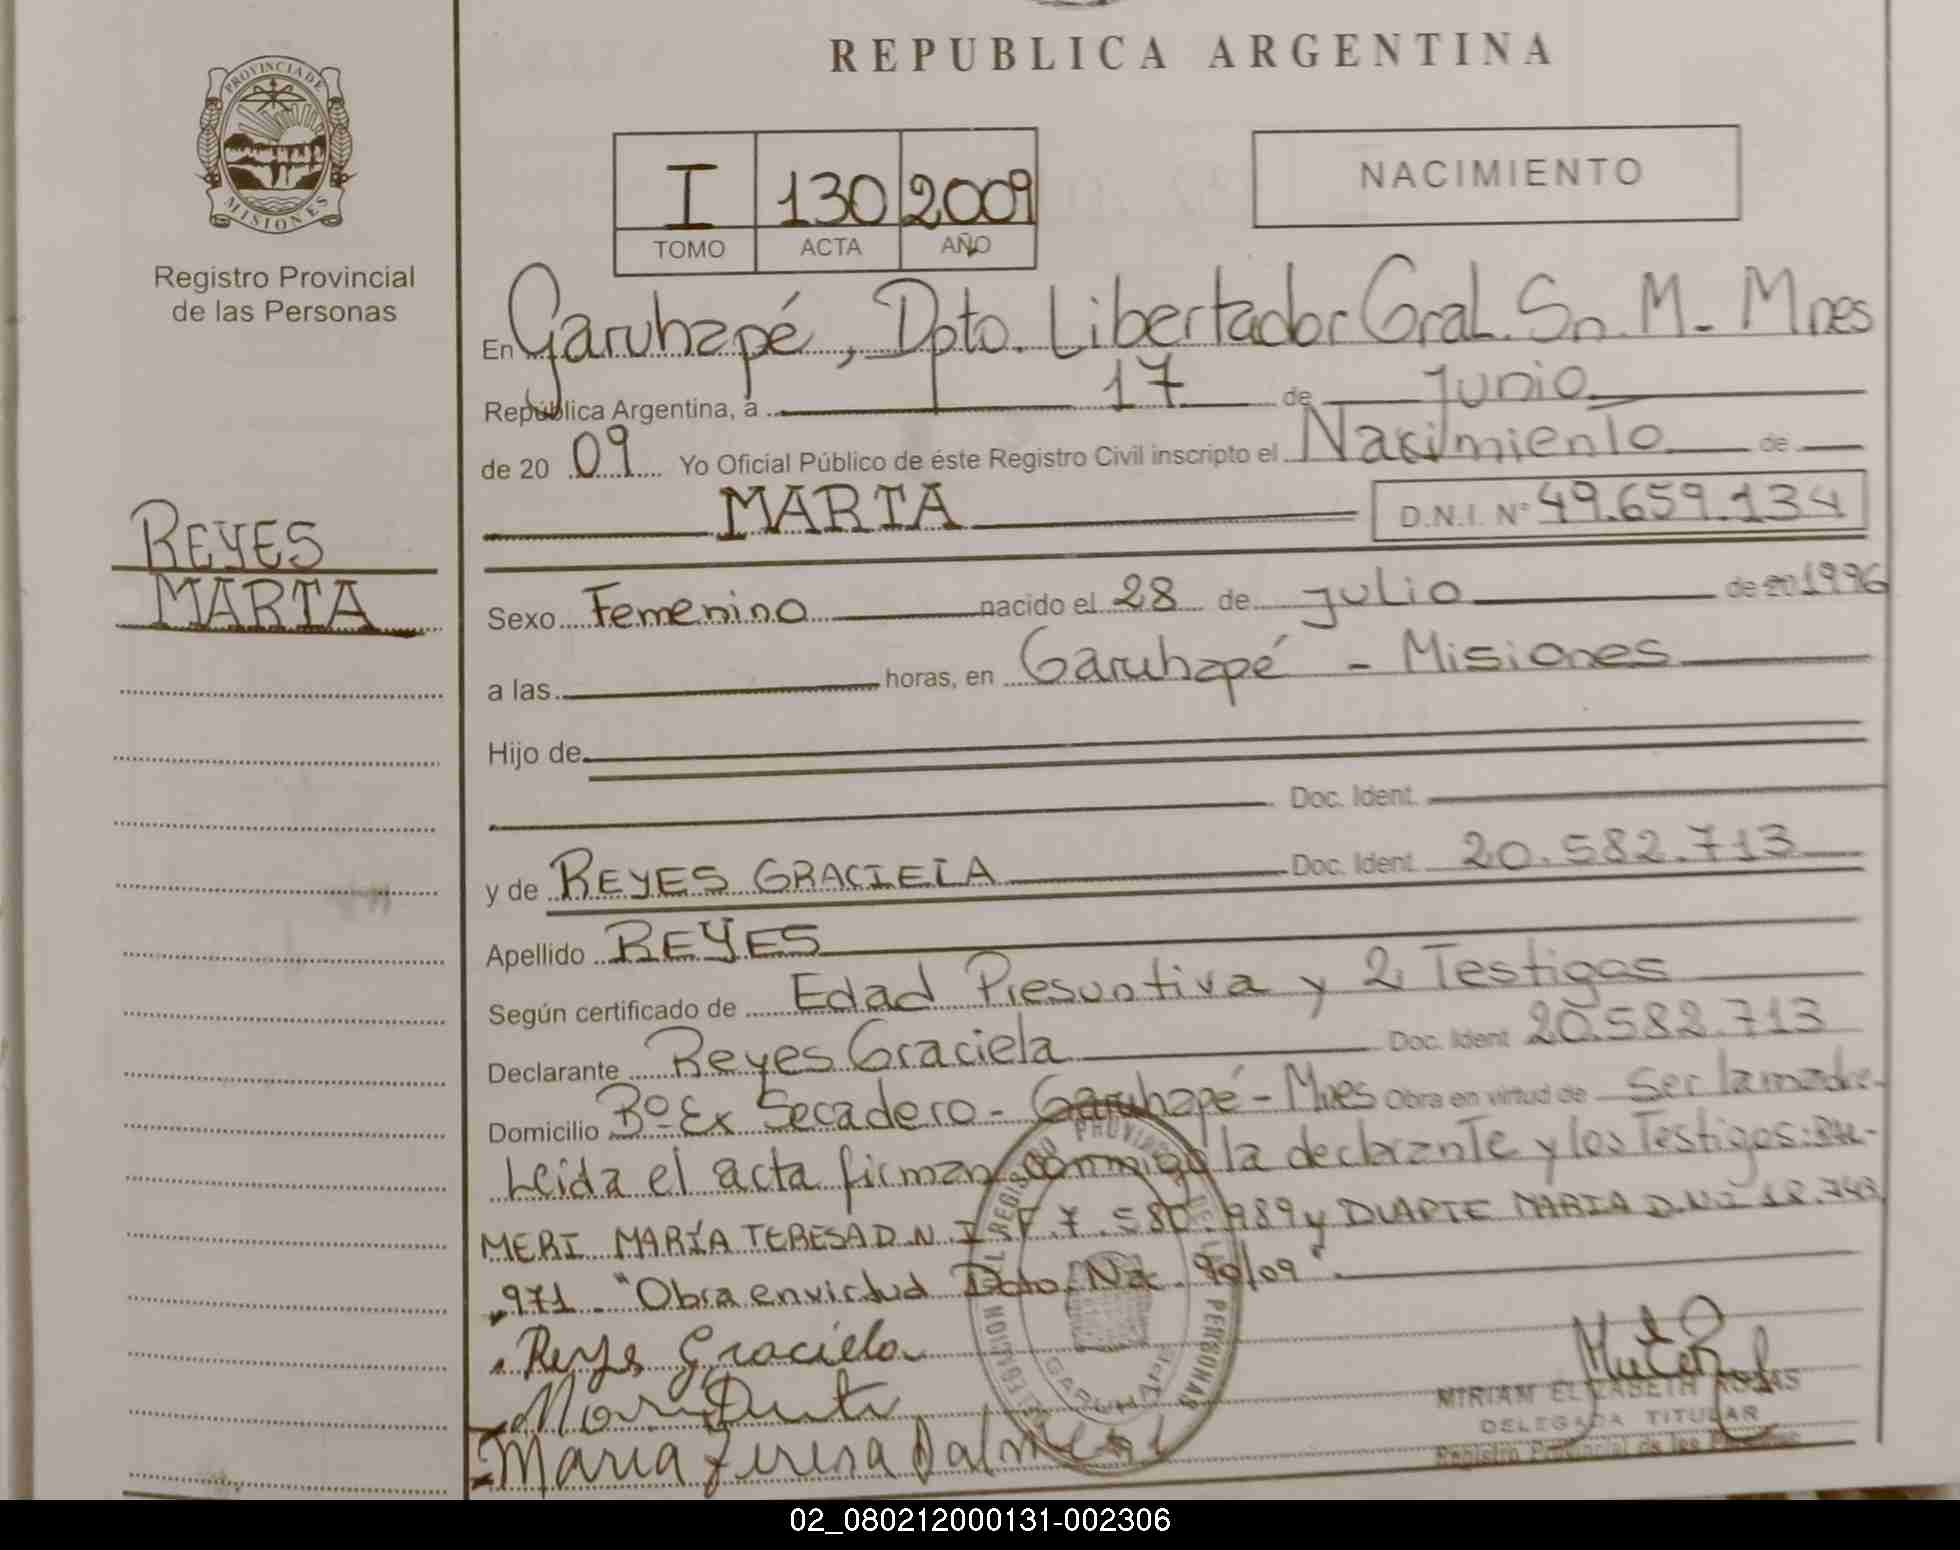 REPUBLICA ARGENTINA
PROVINCIA DE MISIONES
Registro Provincial
de las Personas
I 130 2009
TOMO ACTA AÑO
NACIMIENTO
En Garuhapé, Dpto. Libertador Gral. Sn. M. - Mnes
República Argentina, a 17 de Junio
de 20 09 Yo Oficial Público de éste Registro Civil inscripto el Nacimiento de
MARTA D.N.I. Nº 49.659.134
REYES
MARTA
Sexo Femenino nacido el 28 de julio de 20 1996
a las horas, en Garuhapé - Misiones
Hijo de
Doc. Ident.
y de REYES GRACIELA Doc. Ident. 20.582.713
Apellido REYES
Según certificado de Edad Presuntiva y 2 Testigos
Declarante Reyes Graciela Doc. Ident 20.582.713
Domicilio Bº Ex Secadero - Garuhapé - Mnes Obra en virtud de ser la madre-
Leida el acta firman conmigo la declarante y los Testigos: DAL-
MERI MARÍA TERESA D.N.I F.7.580.989 y DUARTE MARIA D.N.I 18.743
.971. "Obra en virtud Dpto. Nac. 90/09".
Reyes Graciela
Maria Teresa Dalmeri
MIRIAM ELIZABETH ROJAS
DELEGADA TITULAR
Registro Provincial de las Personas
02_080212000131-002306